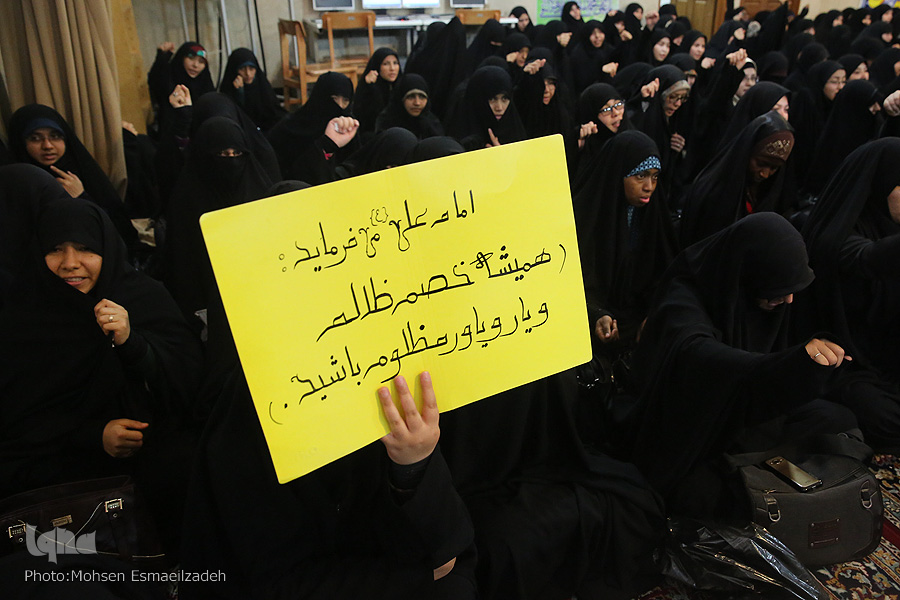 امام علی (ع) می فرماید :
( همیشه خصم ظالم
و یار و یاور مظلوم باشید . )
iqna
Photo:Mohsen Esmaeilzadeh